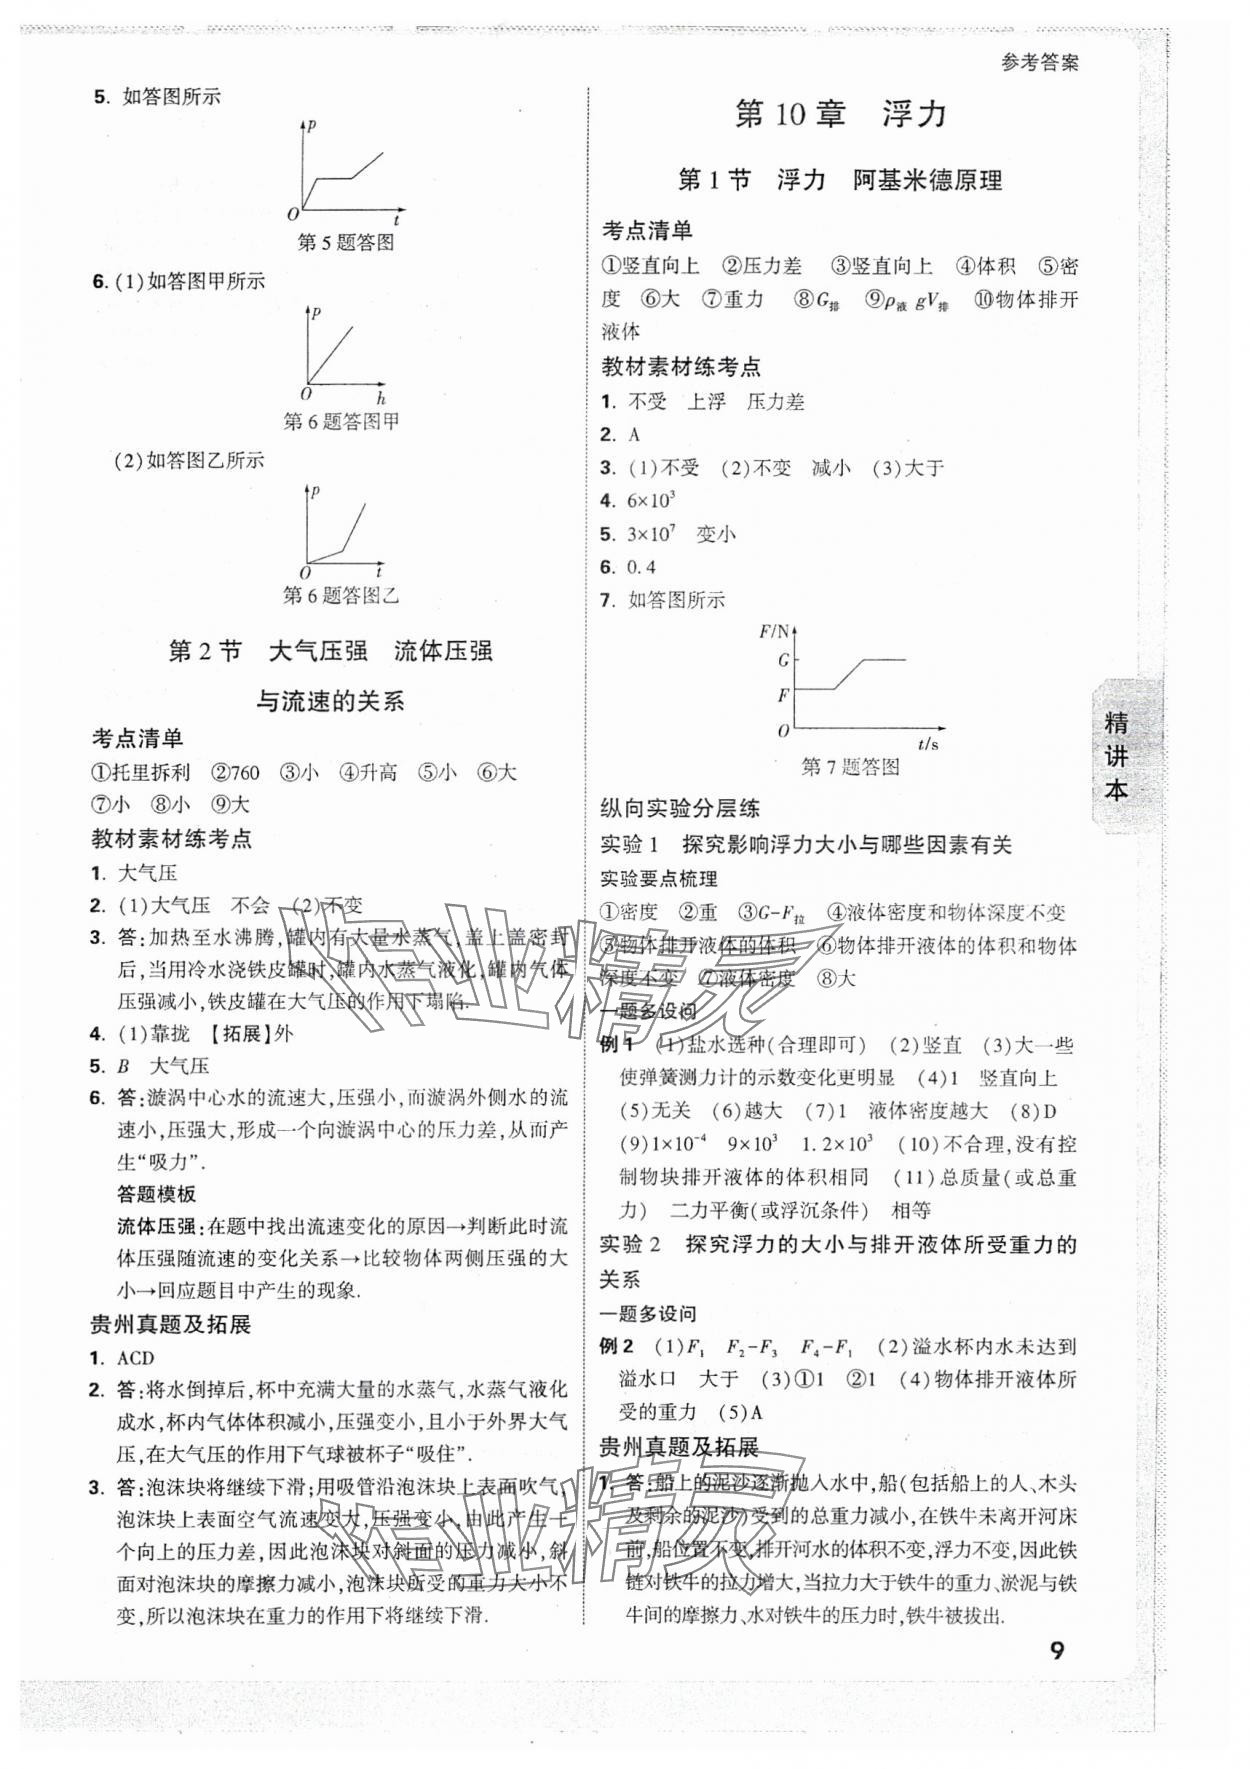 参考答案
5. 如答图所示
p
O
t
第5题答图
6. (1)如答图甲所示
p
O
h
第6题答图甲
(2)如答图乙所示
p
O
t
第6题答图乙
第2节 大气压强 流体压强
与流速的关系
考点清单
①托里拆利 ②760 ③小 ④升高 ⑤小 ⑥大
⑦小 ⑧小 ⑨大
教材素材练考点
1. 大气压
2. (1)大气压 不会 (2)不变
3. 答:加热至水沸腾,罐内有大量水蒸气,盖上盖密封
后,当用冷水浇铁皮罐时,罐内水蒸气液化,罐内气体
压强减小,铁皮罐在大气压的作用下塌陷.
4. (1)靠拢 【拓展】外
5. B 大气压
6. 答:漩涡中心水的流速大,压强小,而漩涡外侧水的流
速小,压强大,形成一个向漩涡中心的压力差,从而产
生“吸力”.
答题模板
流体压强:在题中找出流速变化的原因→判断此时流
体压强随流速的变化关系→比较物体两侧压强的大
小→回应题目中产生的现象.
贵州真题及拓展
1. ACD
2. 答:将水倒掉后,杯中充满大量的水蒸气,水蒸气液化
成水,杯内气体体积减小,压强变小,且小于外界大气
压,在大气压的作用下气球被杯子“吸住”.
3. 答:泡沫块将继续下滑;用吸管沿泡沫块上表面吹气,
泡沫块上表面空气流速变大,压强变小,由此产生一
个向上的压力差,因此泡沫块对斜面的压力减小,斜
面对泡沫块的摩擦力减小,泡沫块所受的重力大小不
变,所以泡沫块在重力的作用下将继续下滑.
第10章 浮力
第1节 浮力 阿基米德原理
考点清单
①竖直向上 ②压力差 ③竖直向上 ④体积 ⑤密
度 ⑥大 ⑦重力 ⑧G排 ⑨ρ液 gV排 ⑩物体排开
液体
教材素材练考点
1. 不受 上浮 压力差
2. A
3. (1)不受 (2)不变 减小 (3)大于
4. 6×10³
5. 3×10⁷ 变小
6. 0.4
7. 如答图所示
F/N
G
F
O
t/s
第7题答图
纵向实验分层练
实验1 探究影响浮力大小与哪些因素有关
实验要点梳理
①密度 ②重 ③G-F拉 ④液体密度和物体深度不变
⑤物体排开液体的体积 ⑥物体排开液体的体积和物体
深度不变 ⑦液体密度 ⑧大
一题多设问
例1 (1)盐水选种(合理即可) (2)竖直 (3)大一些
使弹簧测力计的示数变化更明显 (4)1 竖直向上
(5)无关 (6)越大 (7)1 液体密度越大 (8)D
(9)1×10⁻⁴ 9×10³ 1.2×10³ (10)不合理,没有控
制物块排开液体的体积相同 (11)总质量(或总重
力) 二力平衡(或浮沉条件) 相等
实验2 探究浮力的大小与排开液体所受重力的
关系
一题多设问
例2 (1)F₁ F₂-F₃ F₄-F₁ (2)溢水杯内水未达到
溢水口 大于 (3)①1 ②1 (4)物体排开液体所
受的重力 (5)A
贵州真题及拓展
1. 答:船上的泥沙逐渐抛入水中,船(包括船上的人、木头
及剩余的泥沙)受到的总重力减小,在铁牛未离开河床
前,船位置不变,排开河水的体积不变,浮力不变,因此铁
链对铁牛的拉力增大,当拉力大于铁牛的重力、淤泥与铁
牛间的摩擦力、水对铁牛的压力时,铁牛被拔出.
精讲本
9
作业精灵
作业精灵